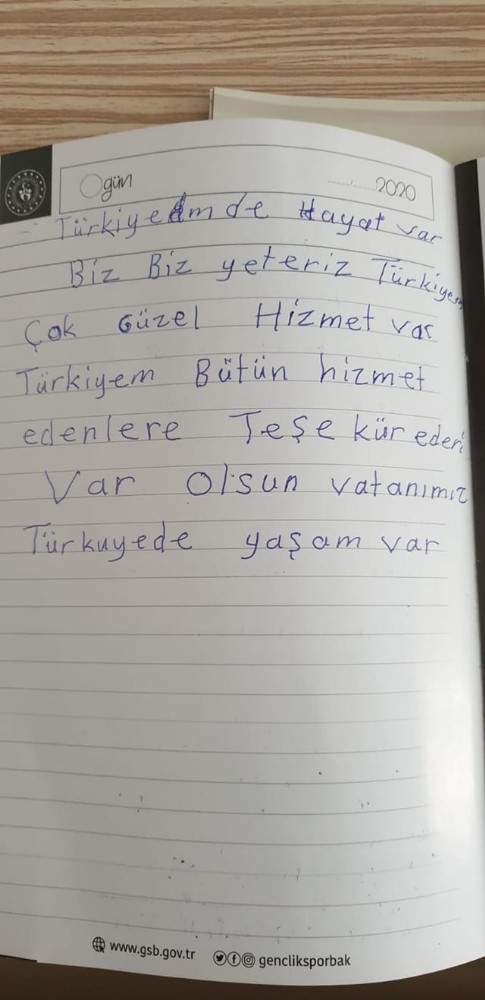 gün
2020
Türkiyemde Hayat var
Biz Biz yeteriz Türkiyem
Çok Güzel Hizmet var
Türkiyem Bütün hizmet
edenlere Teşe kür ederi
Var Olsun vatanımız
Türkuyede yaşam var
www.gsb.gov.tr gencliksporbak